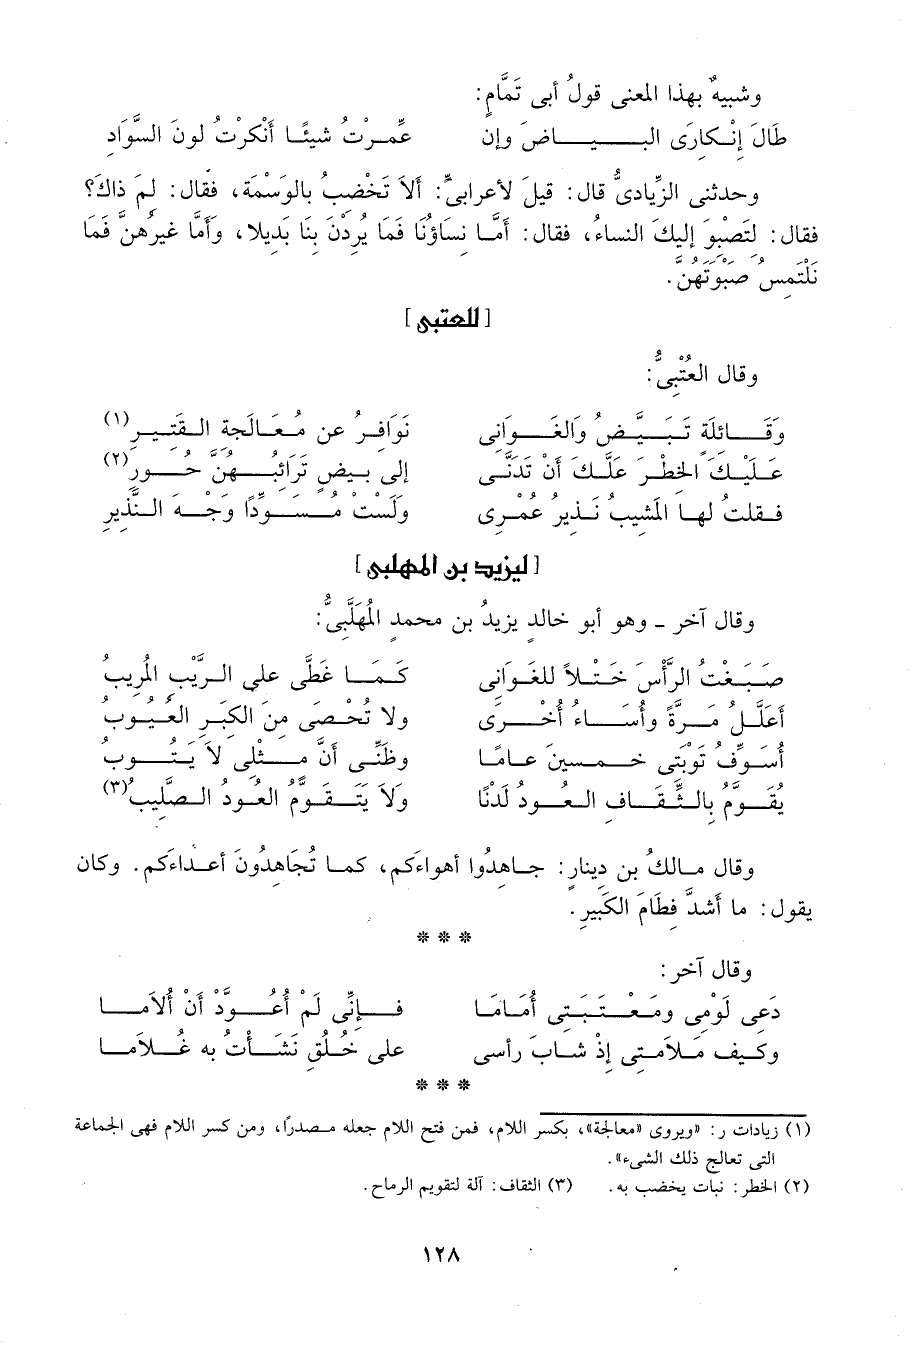 وشبيهٌ بهذا المعنى قولُ أبى تمَّامٍ:
طَالَ إنْكارَى البياضَ وإن عُمِّرْتُ شيئًا أنْكرْتُ لونَ السَّوَادِ
وحدثنى الزِّيادىُّ قال: قيلَ لأعرابىٍّ: ألاَ تَخْضِبُ بالوَسْمَةِ، فقال: لِمَ ذاكَ؟
فقال: لتَصْبُوَ إليكَ النساءُ، فقال: أمَّا نساؤُنَا فَمَا يُرِدْنَ بِنَا بَدِيلا، وأمَّا غيرُهنَّ فَمَا
نَلْتَمِسُ صَبْوَتَهُنَّ.
[للعتبى]
وقال العُتْبىُّ:
وقَائلَةٍ تَبَيَّضُ والغَوانى نَوَافِرُ عن مُعَالَجةِ القَتِيرِ(١)
عَلَيْكَ الخِطْرَ عَلَّكَ أن تَدَنَّى إلى بيضٍ تَرائبُهُنَّ حُورِ(٢)
فقلتُ لها المَشيبُ نَذيرُ عُمْرى ولَسْتُ مُسَوِّدًا وَجْهَ النَّذيرِ
[ليزيد بن المهلبى]
وقال آخر ـ وهو أبو خالد يزيدُ بن محمدٍ المُهَلَّبىُّ:
صَبَغْتُ الرَّأسَ خَتْلاً للغَوانى كَمَا غَطَّى على الرَّيْبِ المُريبُ
أُعَلِّلُ مَرةً وأُسَاءُ أُخْرَى ولا تُحْصَى منَ الكبَرِ العُيُوبُ
أُسَوِّفُ تَوْبَتى خَمْسينَ عامًا وظَنِّى أنَّ مثْلى لاَ يَتُوبُ
يُقَوَّمُ بالثِّقَافِ العودُ لَدْنًا ولاَ يَتَقَوَّمُ العُودُ الصَّليبُ(٣)
وقال مالكُ بن دينارٍ: جاهدُوا أهواءَكم، كما تُجَاهدُونَ أعداءَكم. وكان
يقول: ما أشدَّ فطَامَ الكَبيرِ.
* * *
وقال آخر:
دَعى لَوْمى ومَعْتَبَتى أُمَامَا فإنِّى لَمْ أُعَوَّدْ أنْ أُلاَمَا
وكيفَ مَلاَمَتى إذْ شابَ رأسى على خُلُقٍ نَشَأْتُ به غُلاَمَا
* * *
(١) زيادات ر: «ويروى «معالجة»، بكسر اللام، فمن فتح اللام جعله مصدرًا، ومن كسر اللام فهى الجماعة
التى تعالج ذلك الشىء».
(٢) الخطر: نبات يخضب به. (٣) الثقاف: آلة لتقويم الرماح.
١٢٨